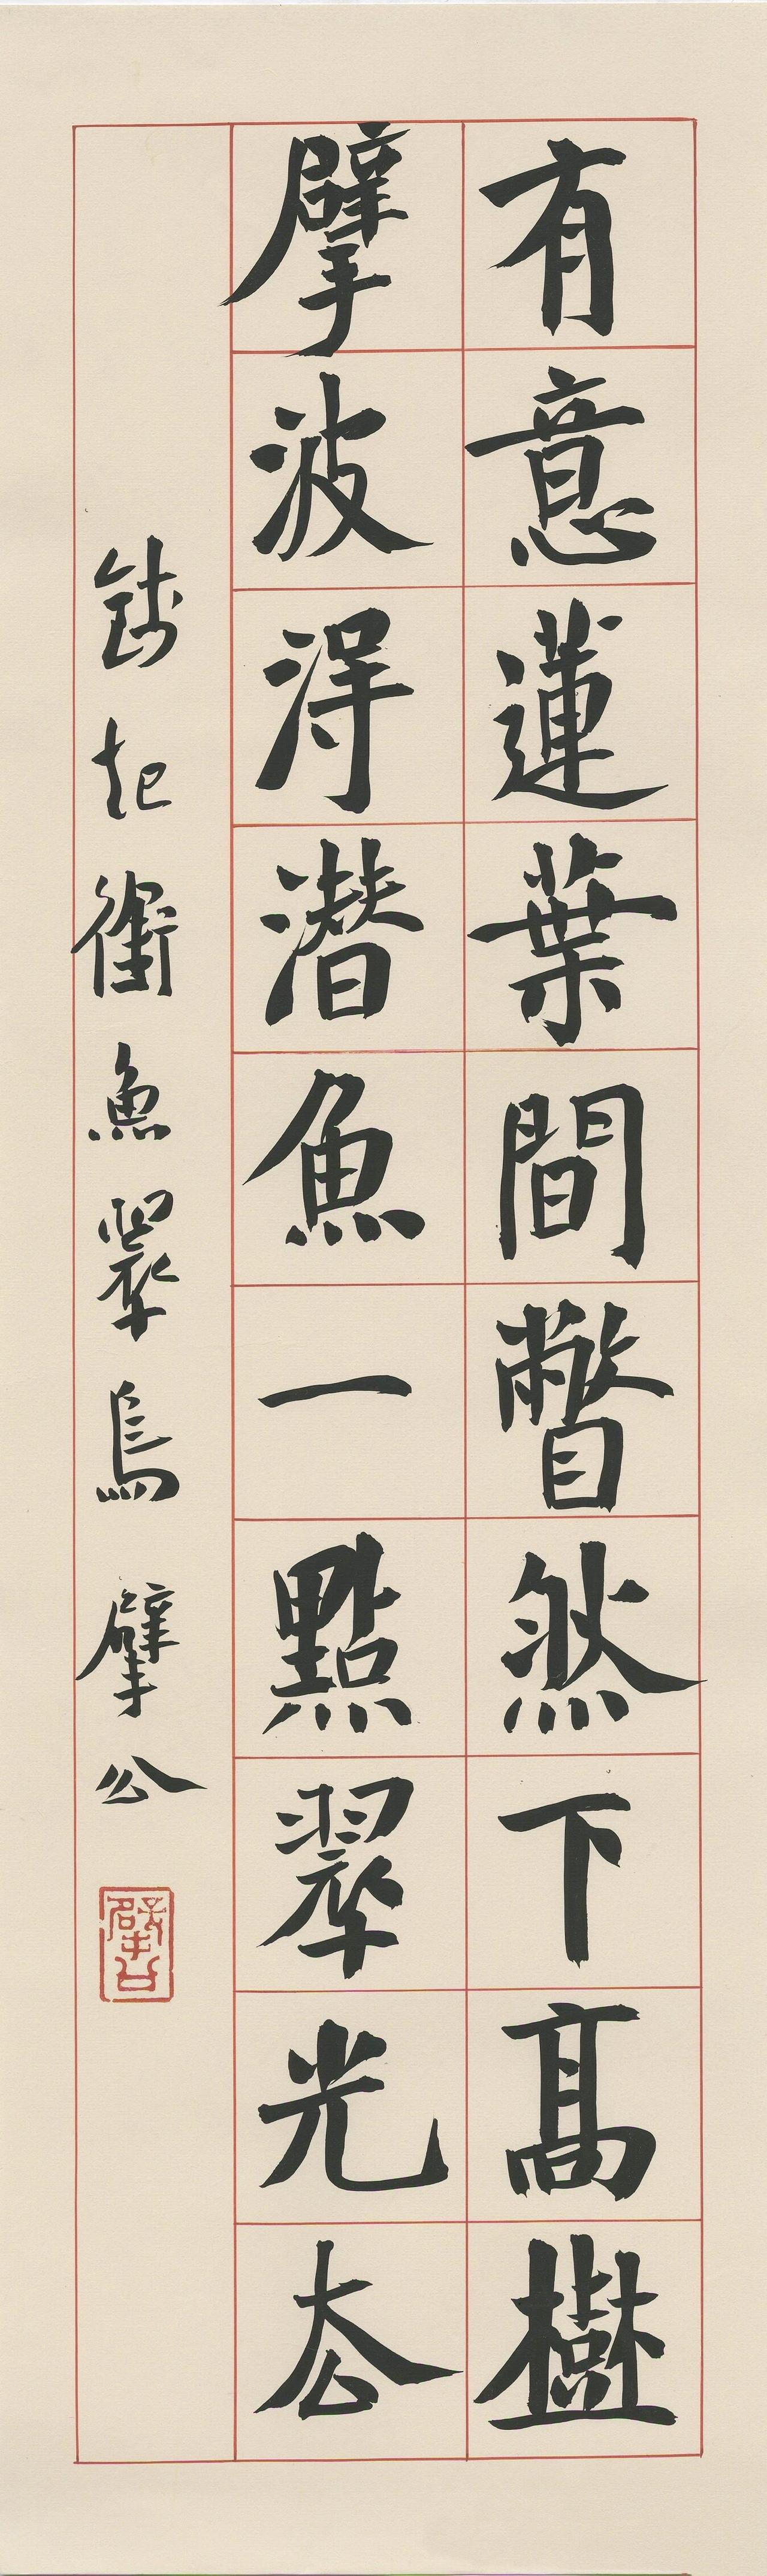 有意蓮葉間瞥然下高樹
擘波淂潛魚一點翠光去
錢起銜魚翠鳥 擘公